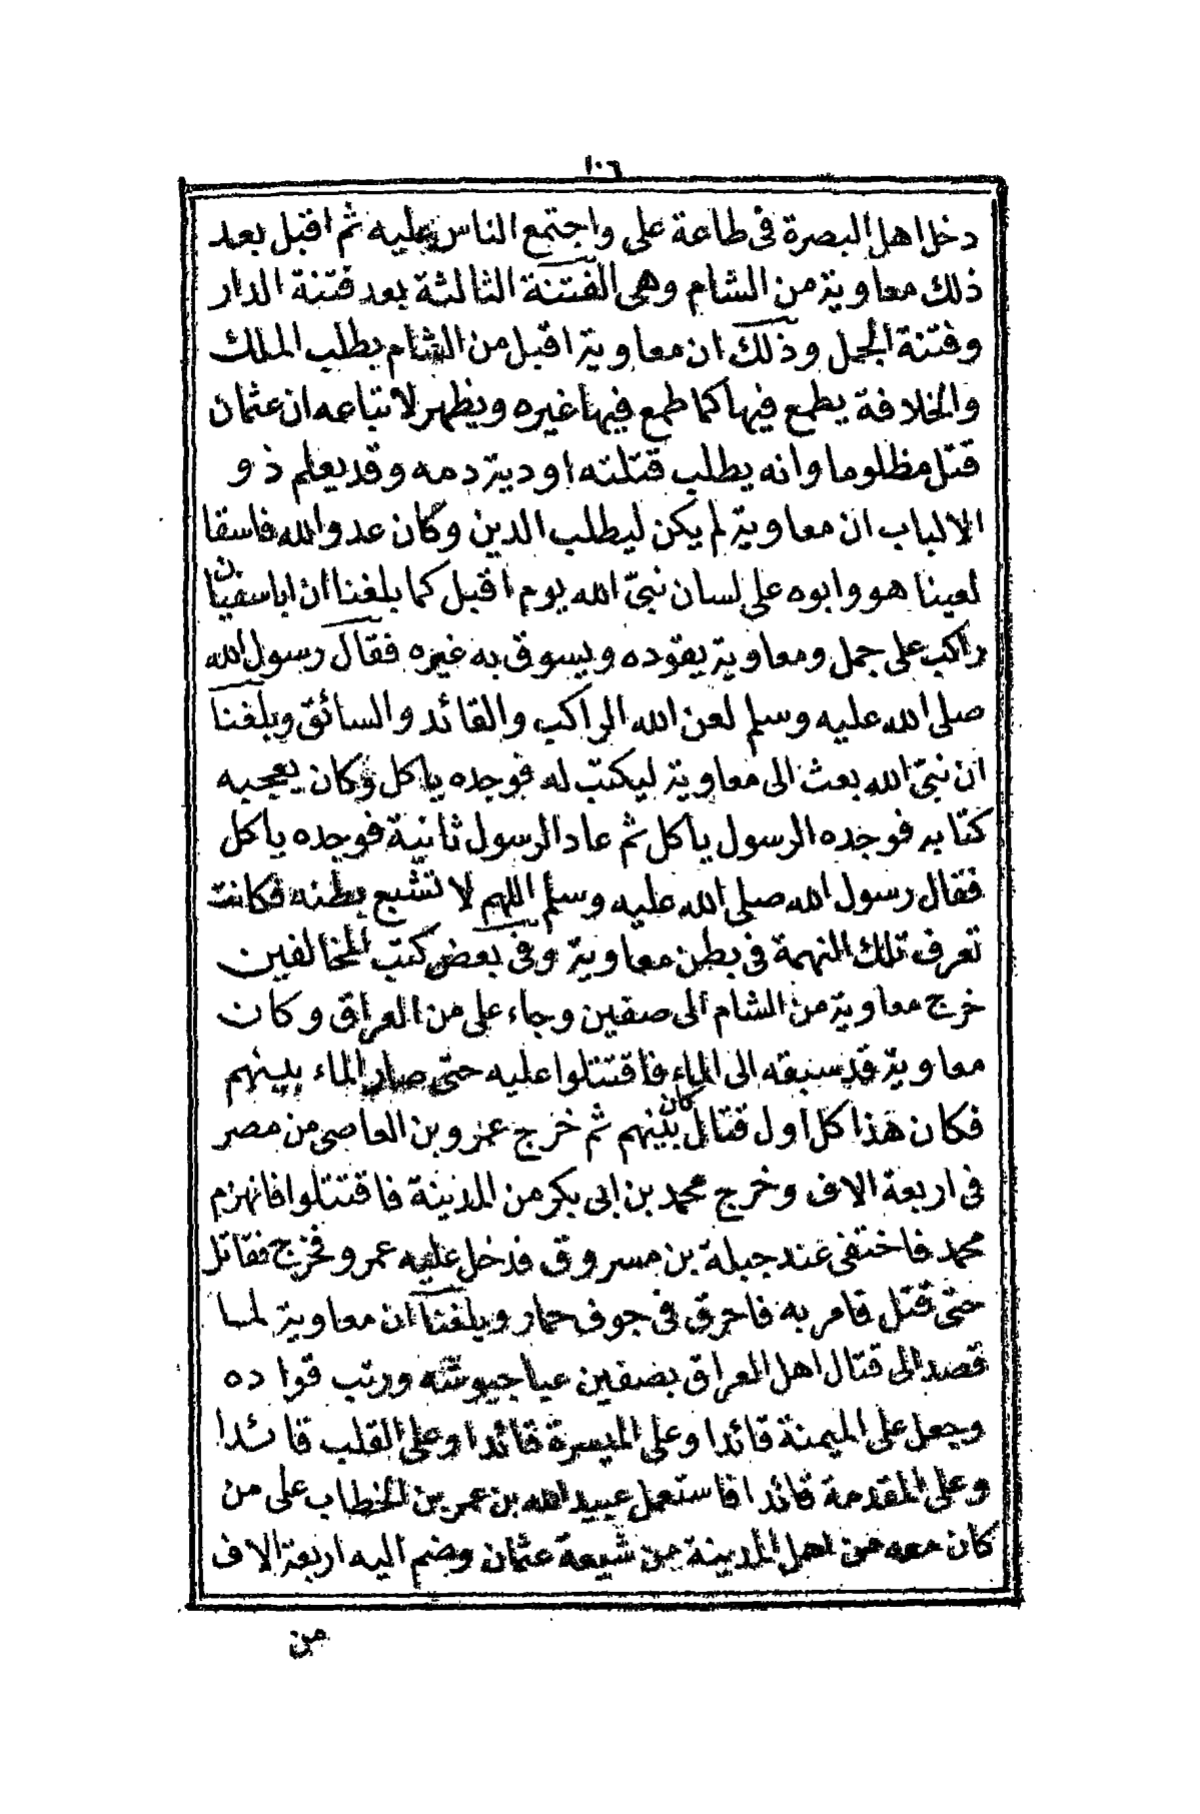 ١٠٦
دخل اهل البصرة في طاعة علي واجتمع الناس عليه ثم اقبل بعد
ذلك معاوية من الشام وهي الفتنة الثالثة بعد فتنة الدار
وفتنة الجمل وذلك ان معاوية اقبل من الشام يطلب الملك
والخلافة يطمع فيها كما طمع فيها غيره ويظهر لاتباعه ان عثمان
قتل مظلوما وانه يطلب قتلته او دية دمه وقد يعلم ذو
الالباب ان معاوية لم يكن ليطلب الدين وكان عدو الله فاسقا
لعينا هو وابوه على لسان نبيّ الله يوم اقبل كما بلغنا ان اباسفيان
راكب على جمل ومعاوية يقوده ويسوق به غيره فقال رسول الله
صلى الله عليه وسلم لعن الله الراكب والقائد والسائق وبلغنا
ان نبيّ الله بعث الى معاوية ليكتب له فوجده ياكل وكان يعجبه
كتابه فوجده الرسول ياكل ثم عاد الرسول ثانية فوجده ياكل
فقال رسول الله صلى الله عليه وسلم اللهم لا تشبع بطنه فكانت
تعرف تلك النهمة في بطن معاوية وفي بعض كتب المخالفين
خرج معاوية من الشام الى صفين وجاء علي من العراق وكان
معاوية قد سبقه الى الماء فاقتتلوا عليه حتى صار الماء بينهم
فكان هذا كل اول قتال كان بينهم ثم خرج عمرو بن العاصي من مصر
في اربعة الاف وخرج محمد بن ابي بكر من المدينة فاقتتلوا فانهزم
محمد فاختفى عند جبلة بن مسروق فدخل عليه عمرو فخرج فقاتل
حتى قتل فامر به فاحرق في جوف حمار وبلغنا ان معاوية لما
قصد الى قتال اهل العراق بصفين عبا جيوشه ورتب قواده
وجعل على الميمنة قائدا وعلى الميسرة قائدا وعلى القلب قائدا
وعلى المقدمة قائدا فاستعمل عبيد الله بن عمر بن الخطاب على من
كان معه من اهل المدينة من شيعة عثمان وضم اليه اربعة الاف
من